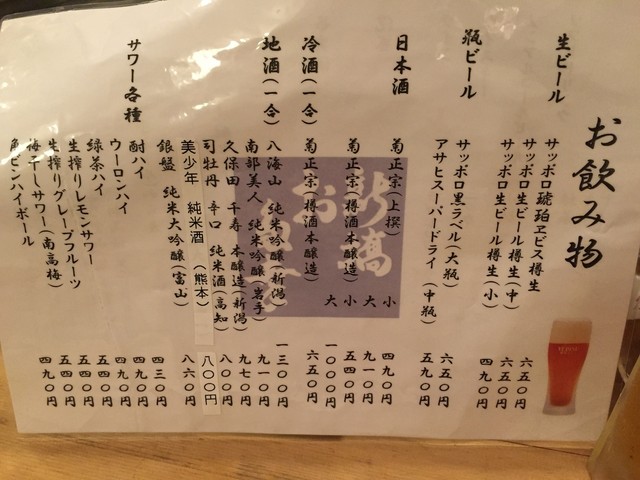 お飲み物
生ビール
サッポロ琥珀ヱビス樽生 六五〇円
サッポロ生ビール樽生(中) 六五〇円
サッポロ生ビール樽生(小) 四九〇円
瓶ビール
サッポロ黒ラベル(大瓶) 六五〇円
アサヒスーパードライ(中瓶) 五九〇円
日本酒
菊正宗(上撰) 小 四九〇円
大 九一〇円
菊正宗(樽酒本醸造) 小 五四〇円
大 一〇〇〇円
冷酒(一合)
菊正宗(樽酒本醸造) 六五〇円
地酒(一合)
八海山 純米吟醸(新潟) 一三〇〇円
南部美人 純米吟醸(岩手) 九一〇円
久保田 千寿 本醸造(新潟) 九七〇円
司牡丹 辛口 純米酒(高知) 八〇〇円
美少年 純米酒(熊本) 八〇〇円
銀盤 純米大吟醸(富山) 八六〇円
サワー各種
酎ハイ 四三〇円
ウーロンハイ 四九〇円
緑茶ハイ 四九〇円
生搾りレモンサワー 五四〇円
生搾りグレープフルーツ 五四〇円
梅干しサワー(南高梅) 五四〇円
角ビンハイボール 四九〇円